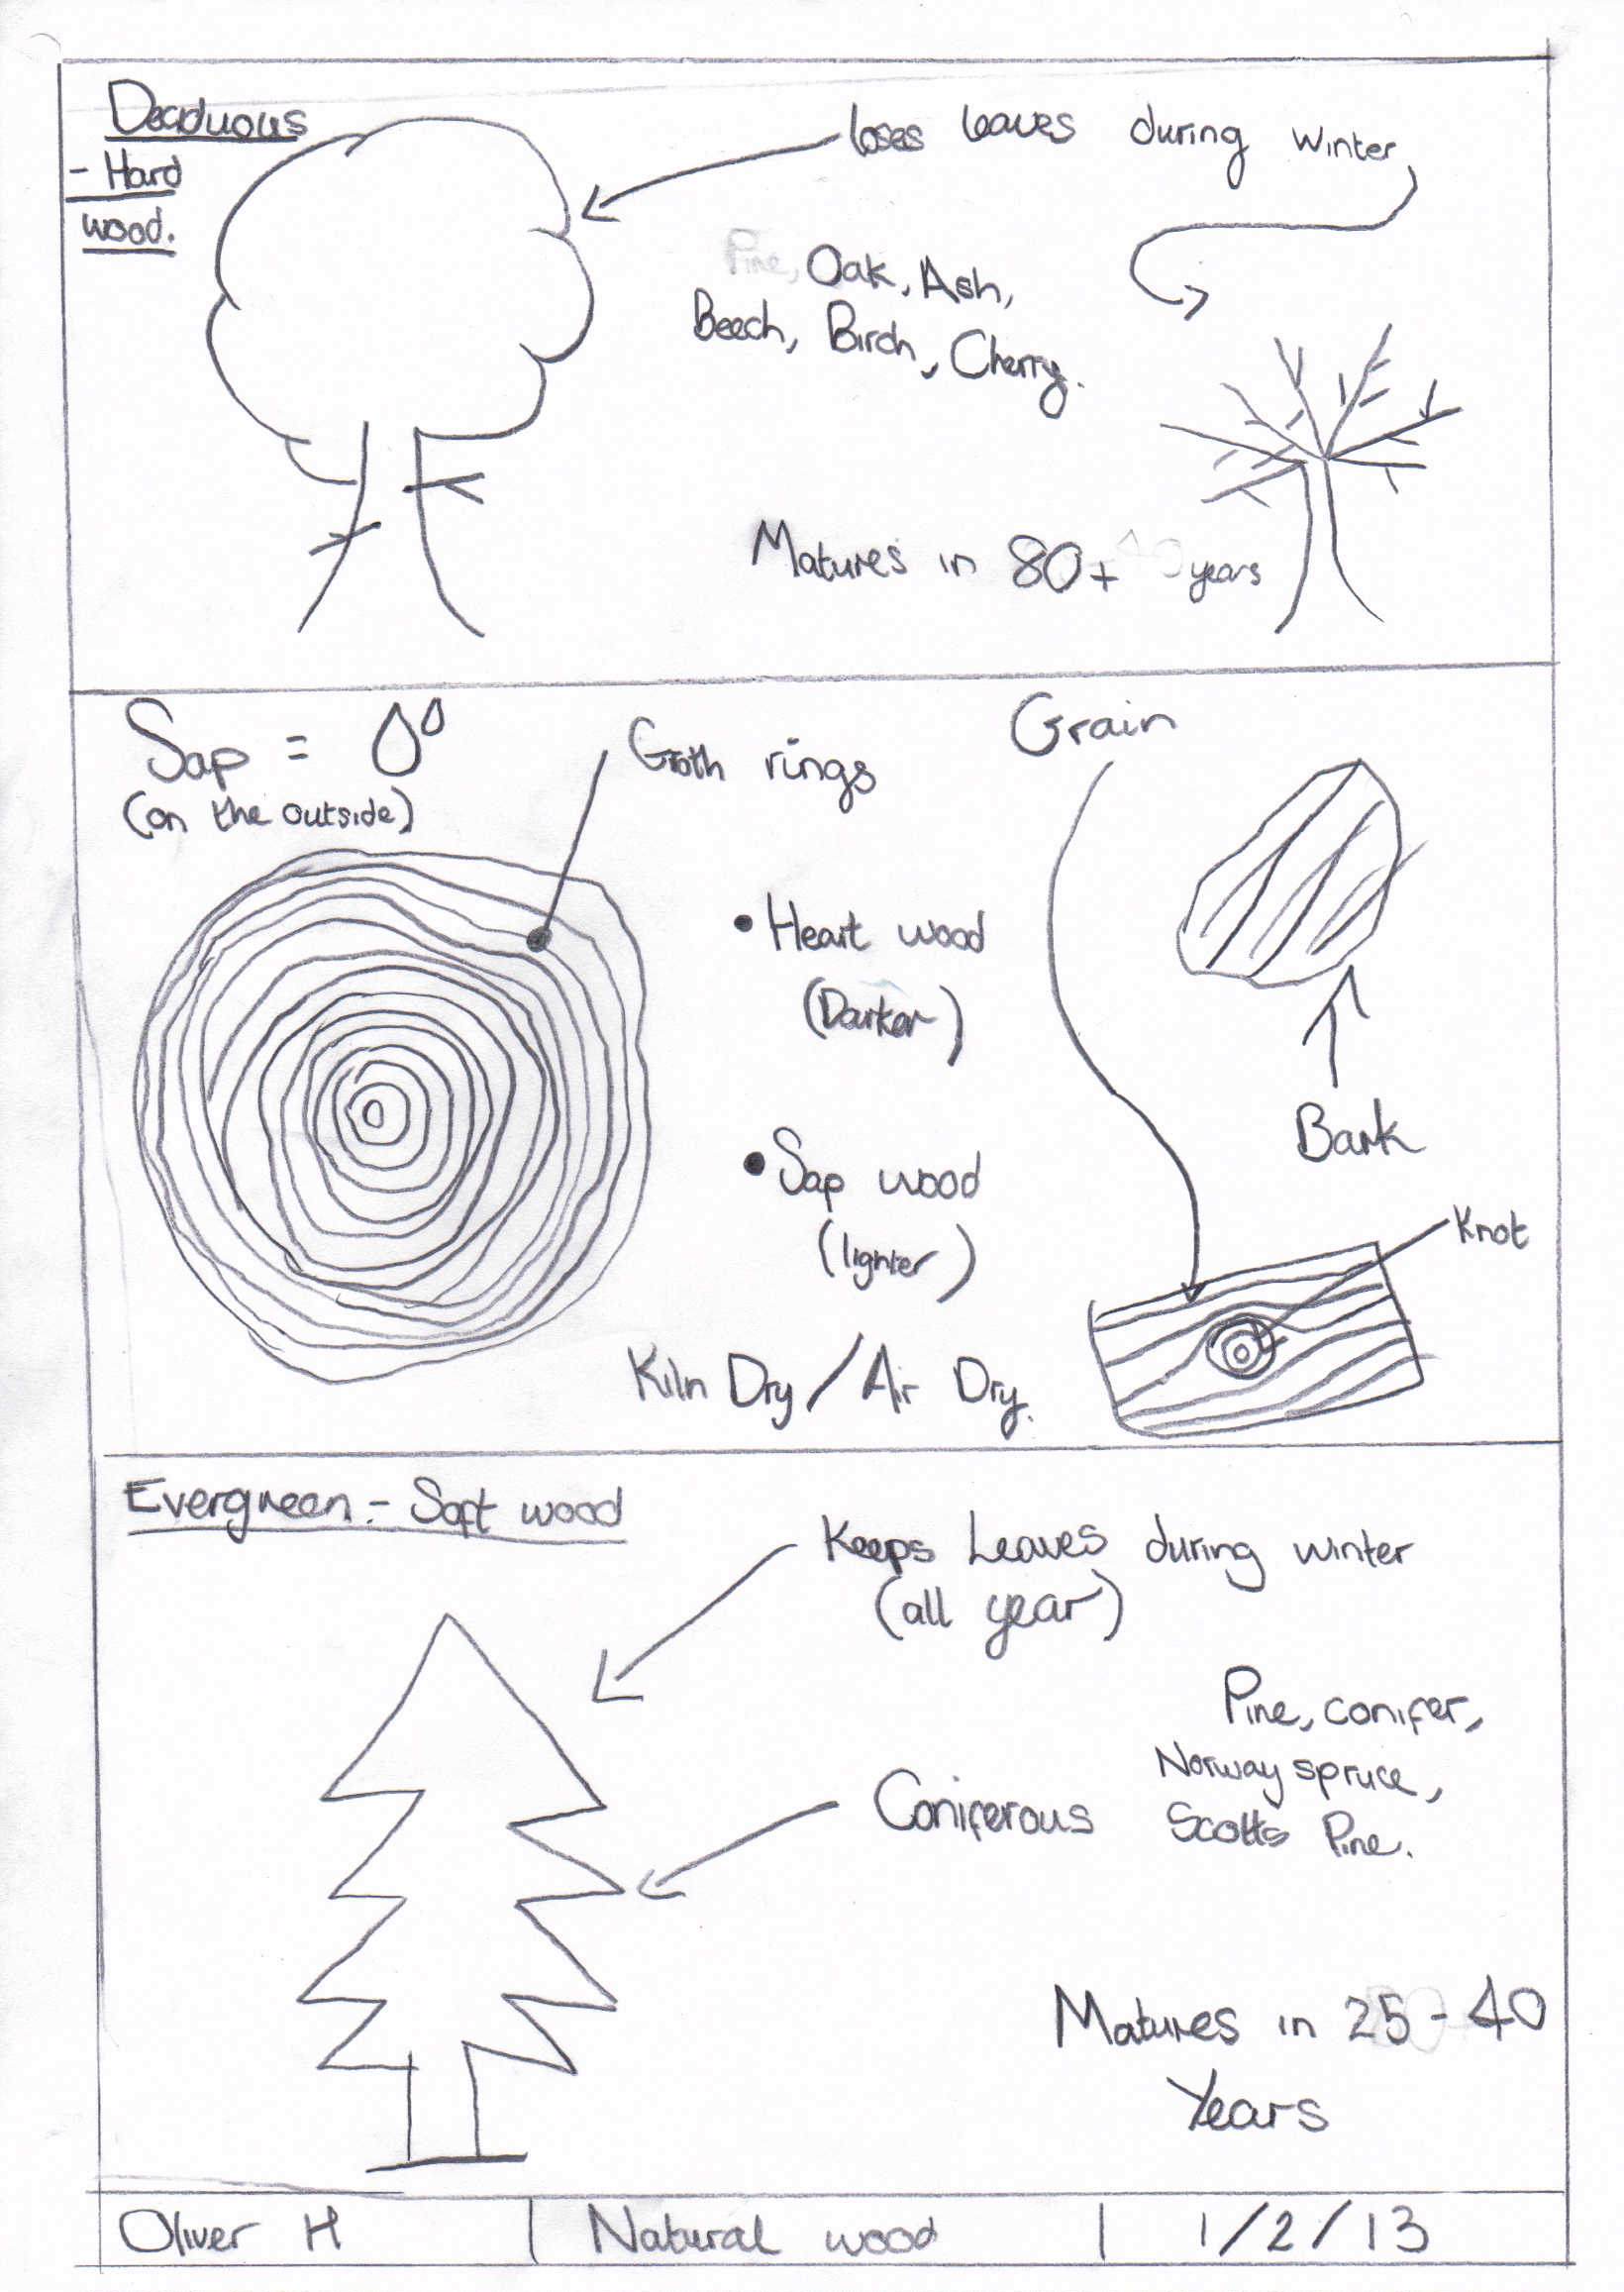 Deciduous
- Hard
wood.
loses leaves during winter
Pine, Oak, Ash,
Beech, Birch, Cherry.
Matures in 80+ 40 years
Sap =
(on the outside)
Groth rings
Grain
• Heart wood
(Darker)
Bark
• Sap wood
(lighter)
Knot
Kiln Dry / Air Dry.
Evergreen - Soft wood
Keeps Leaves during winter
(all year)
Pine, conifer,
Norway spruce,
Scotts Pine.
Coniferous
Matures in 25 - 40
Years
Oliver H | Natural wood | 1/2/13